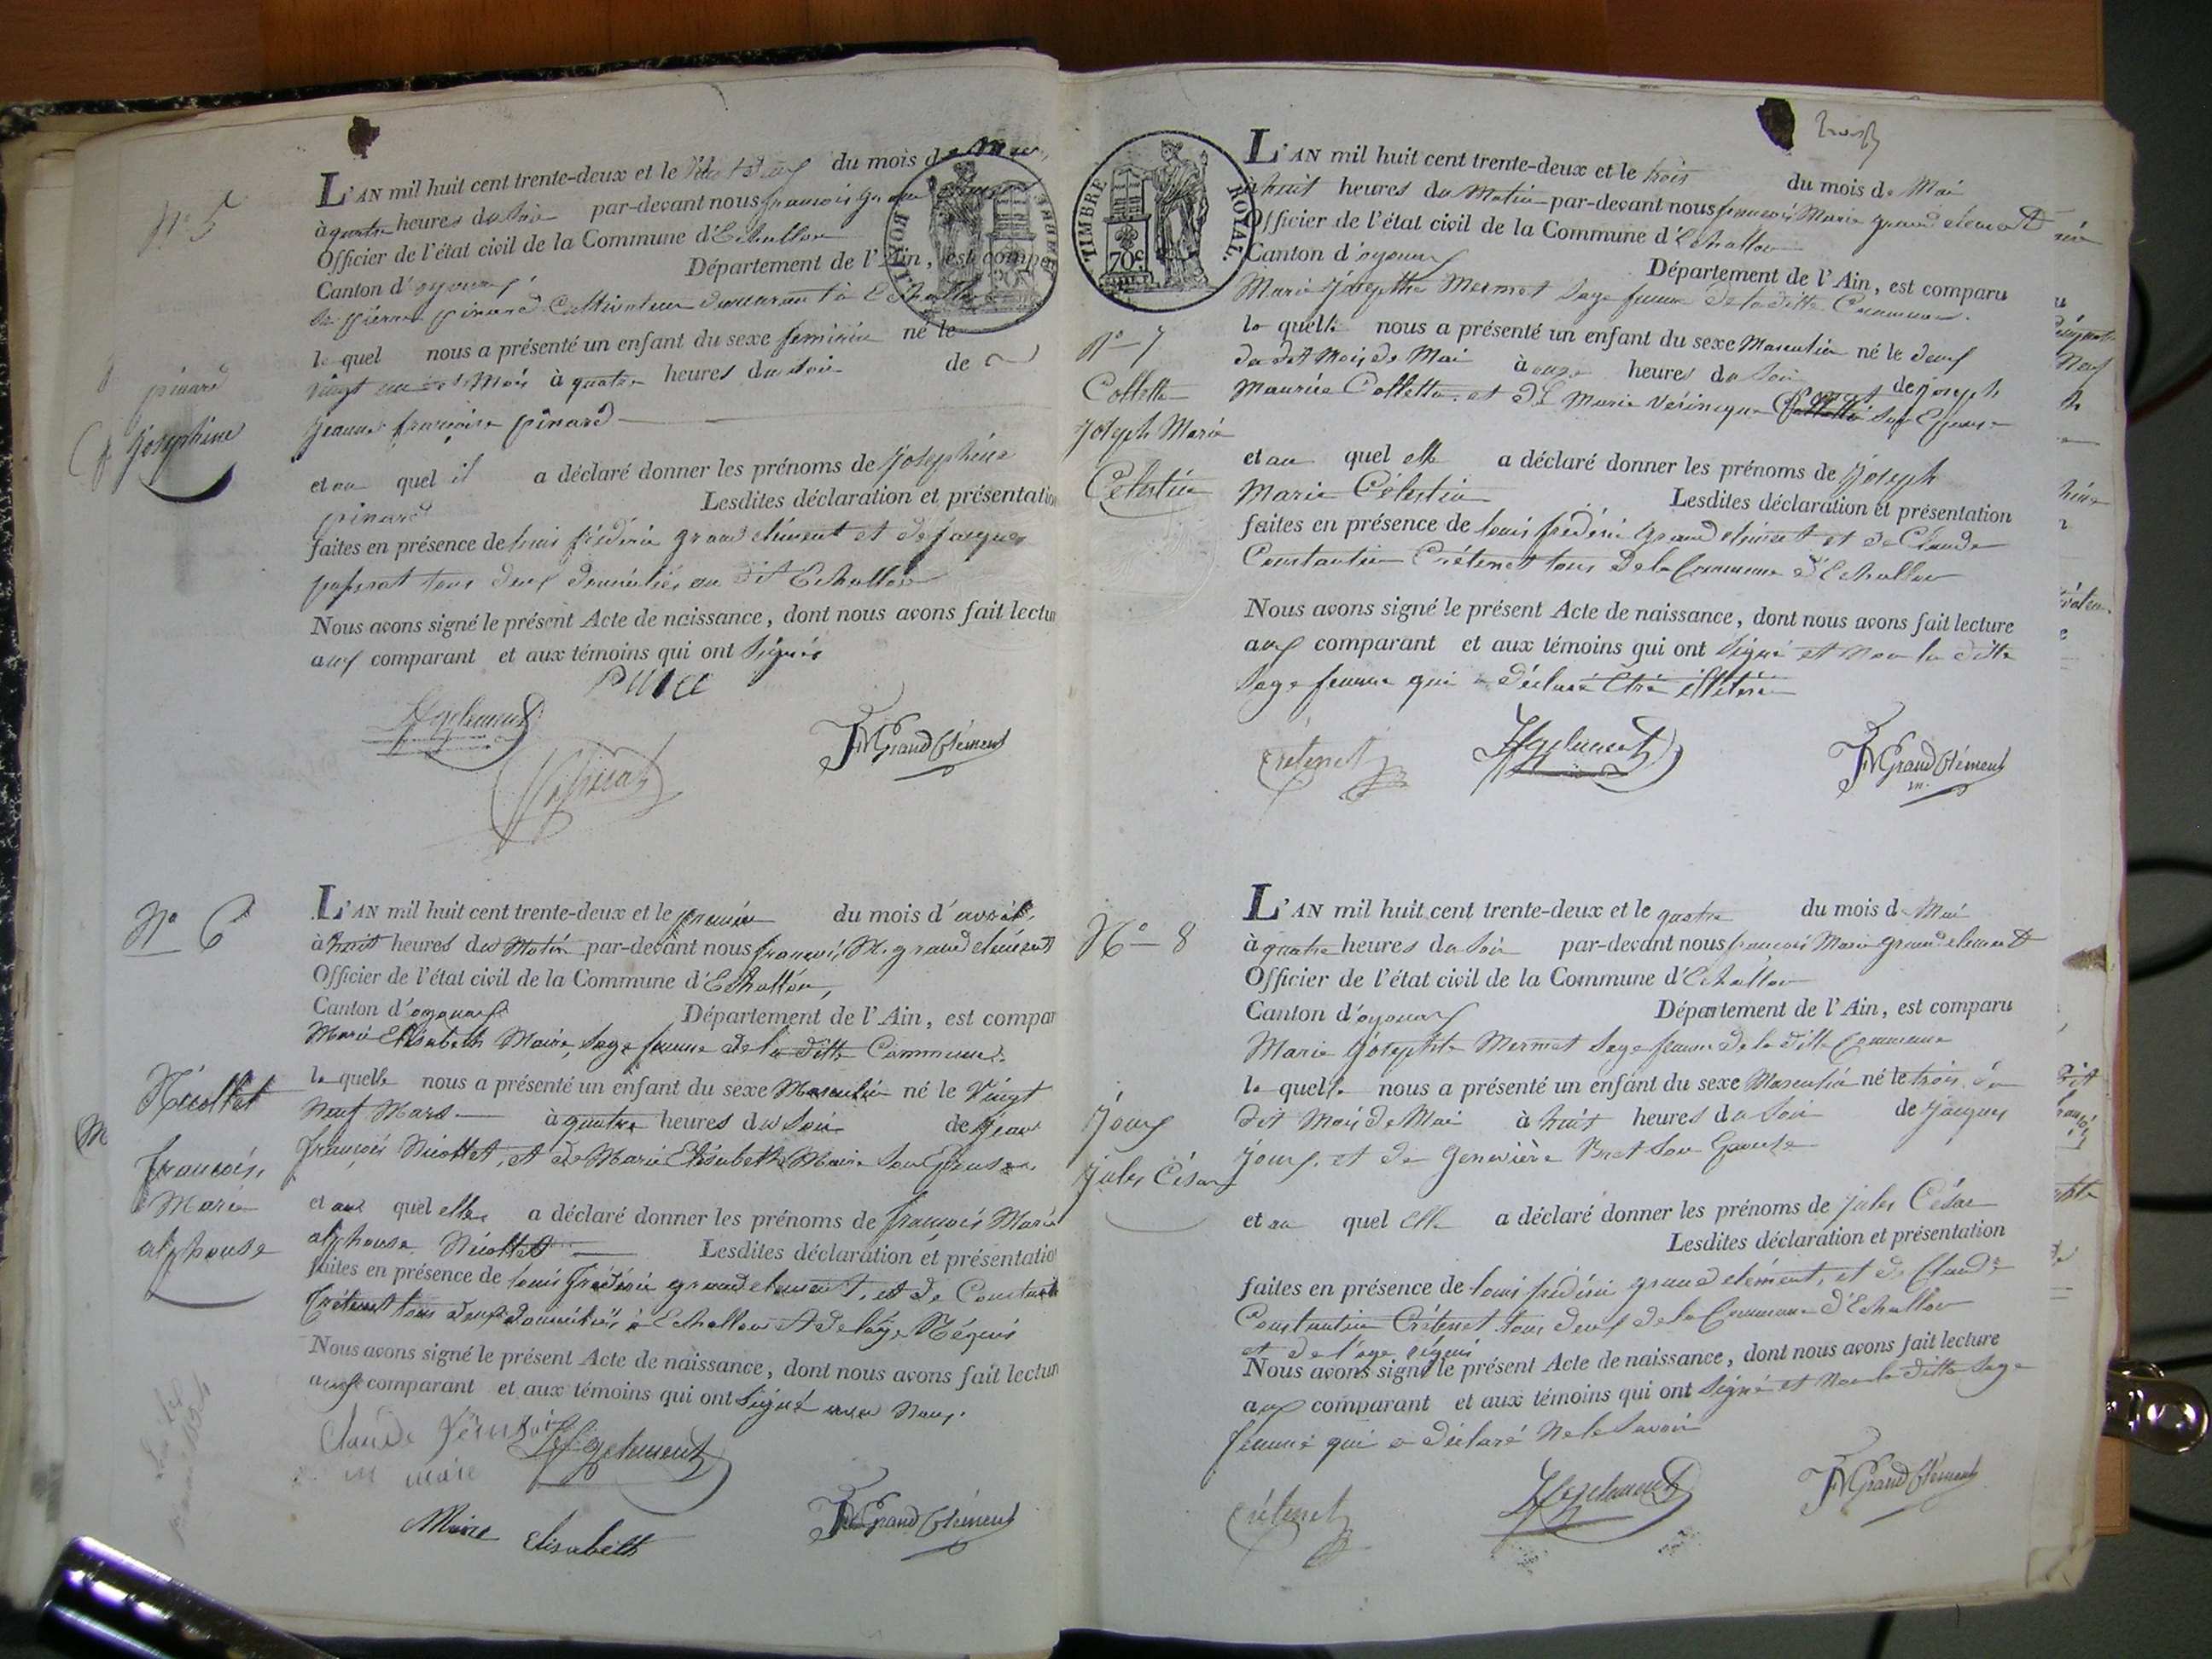 N° 5
pinard
Josephine
L'AN mil huit cent trente-deux et le vingt deux du mois de Mars,
à quatre heures du soir par-devant nous françois grand
Officier de l'état civil de la Commune d'Echallon
Canton d'oyonnax Département de l'Ain, est compa
pierre pinard Cultivateur demeurant à Echallon
le quel nous a présenté un enfant du sexe feminin né le
vingt un mois à quatre heures du soir de
jeanne françoise pinard
et au quel il a déclaré donner les prénoms de Josephine
pinard Lesdites déclaration et présentation
faites en présence de louis frédéric grand clément et de jacques
passerat tous deux domiciliés au dit Echallon
Nous avons signé le présent Acte de naissance, dont nous avons fait lectur
aux comparant et aux témoins qui ont signés
FMGrandClément
N° 6
Nicollet
françois,
Marie
alphonse
L'AN mil huit cent trente-deux et le premier du mois d'avril,
à huit heures du Matin par-devant nous françois M. grand clément
Officier de l'état civil de la Commune d'Echallon,
Canton d'oyonnax Département de l'Ain, est compar
Marie Elisabeth Maire, sage femme de la ditte Commune.
la quelle nous a présenté un enfant du sexe Masculin né le Vingt
Neuf Mars à quatre heures du soir de jean
françois Nicollet, et de Marie Elisabeth Maire son Epouse.
et au quel elle a déclaré donner les prénoms de françois Marie
alphonse Nicollet Lesdites déclaration et présentatio
faites en présence de louis frédéric grand clement, et de Constantin
Crétenet tous deux domiciliés à Echallon et de l'âge Réquis
Nous avons signé le présent Acte de naissance, dont nous avons fait lectur
aux comparant et aux témoins qui ont signé avec Nous.
Claude
m maire
Maire Elisabeth
FMGrandClément
L'AN mil huit cent trente-deux et le trois du mois de Mai
à huit heures du Matin par-devant nous françois Marie grand clement
Officier de l'état civil de la Commune d'Echallon
Canton d'oyonnax Département de l'Ain, est comparu
Marie Josephte Mermet sage femme de la ditte Commune.
TIMBRE ROYAL.
70c
N° 7
Collette
Joseph Marie
Célestin
la quelle nous a présenté un enfant du sexe Masculin né le deux
du dit Mois de Mai à onze heures du soir de joseph
Maurice Collette, et de Marie Véronique son Epouse
et au quel elle a déclaré donner les prénoms de Joseph
Marie Célestin Lesdites déclaration et présentation
faites en présence de louis frédéric grand clément et de Claude
Constantin Crétenet tous de la Commune d'Echallon
Nous avons signé le présent Acte de naissance, dont nous avons fait lecture
aux comparant et aux témoins qui ont signé et non la ditte
sage femme qui a déclaré être illétrée
Crétenet
FMGrandClément
m.
N° 8
Joux
Jules César
L'AN mil huit cent trente-deux et le quatre du mois de Mai
à quatre heures du soir par-devant nous françois Marie grand clement
Officier de l'état civil de la Commune d'Echallon
Canton d'oyonnax Département de l'Ain, est comparu
Marie Josephte Mermet sage femme de la ditte Commune
la quelle nous a présenté un enfant du sexe Masculin né le trois du
dit Mois de Mai à huit heures du soir de jacques
Joux, et de Geneviève Bret son Epouse
et au quel Elle a déclaré donner les prénoms de jules César
Lesdites déclaration et présentation
faites en présence de louis frédéric grand clément, et de Claude
Constantin Crétenet tous deux de la Commune d'Echallon
et de l'age réquis
Nous avons signé le présent Acte de naissance, dont nous avons fait lecture
aux comparant et aux témoins qui ont signé et non la ditte sage
femme qui a déclaré ne le savoir
Crétenet
FMGrandClément